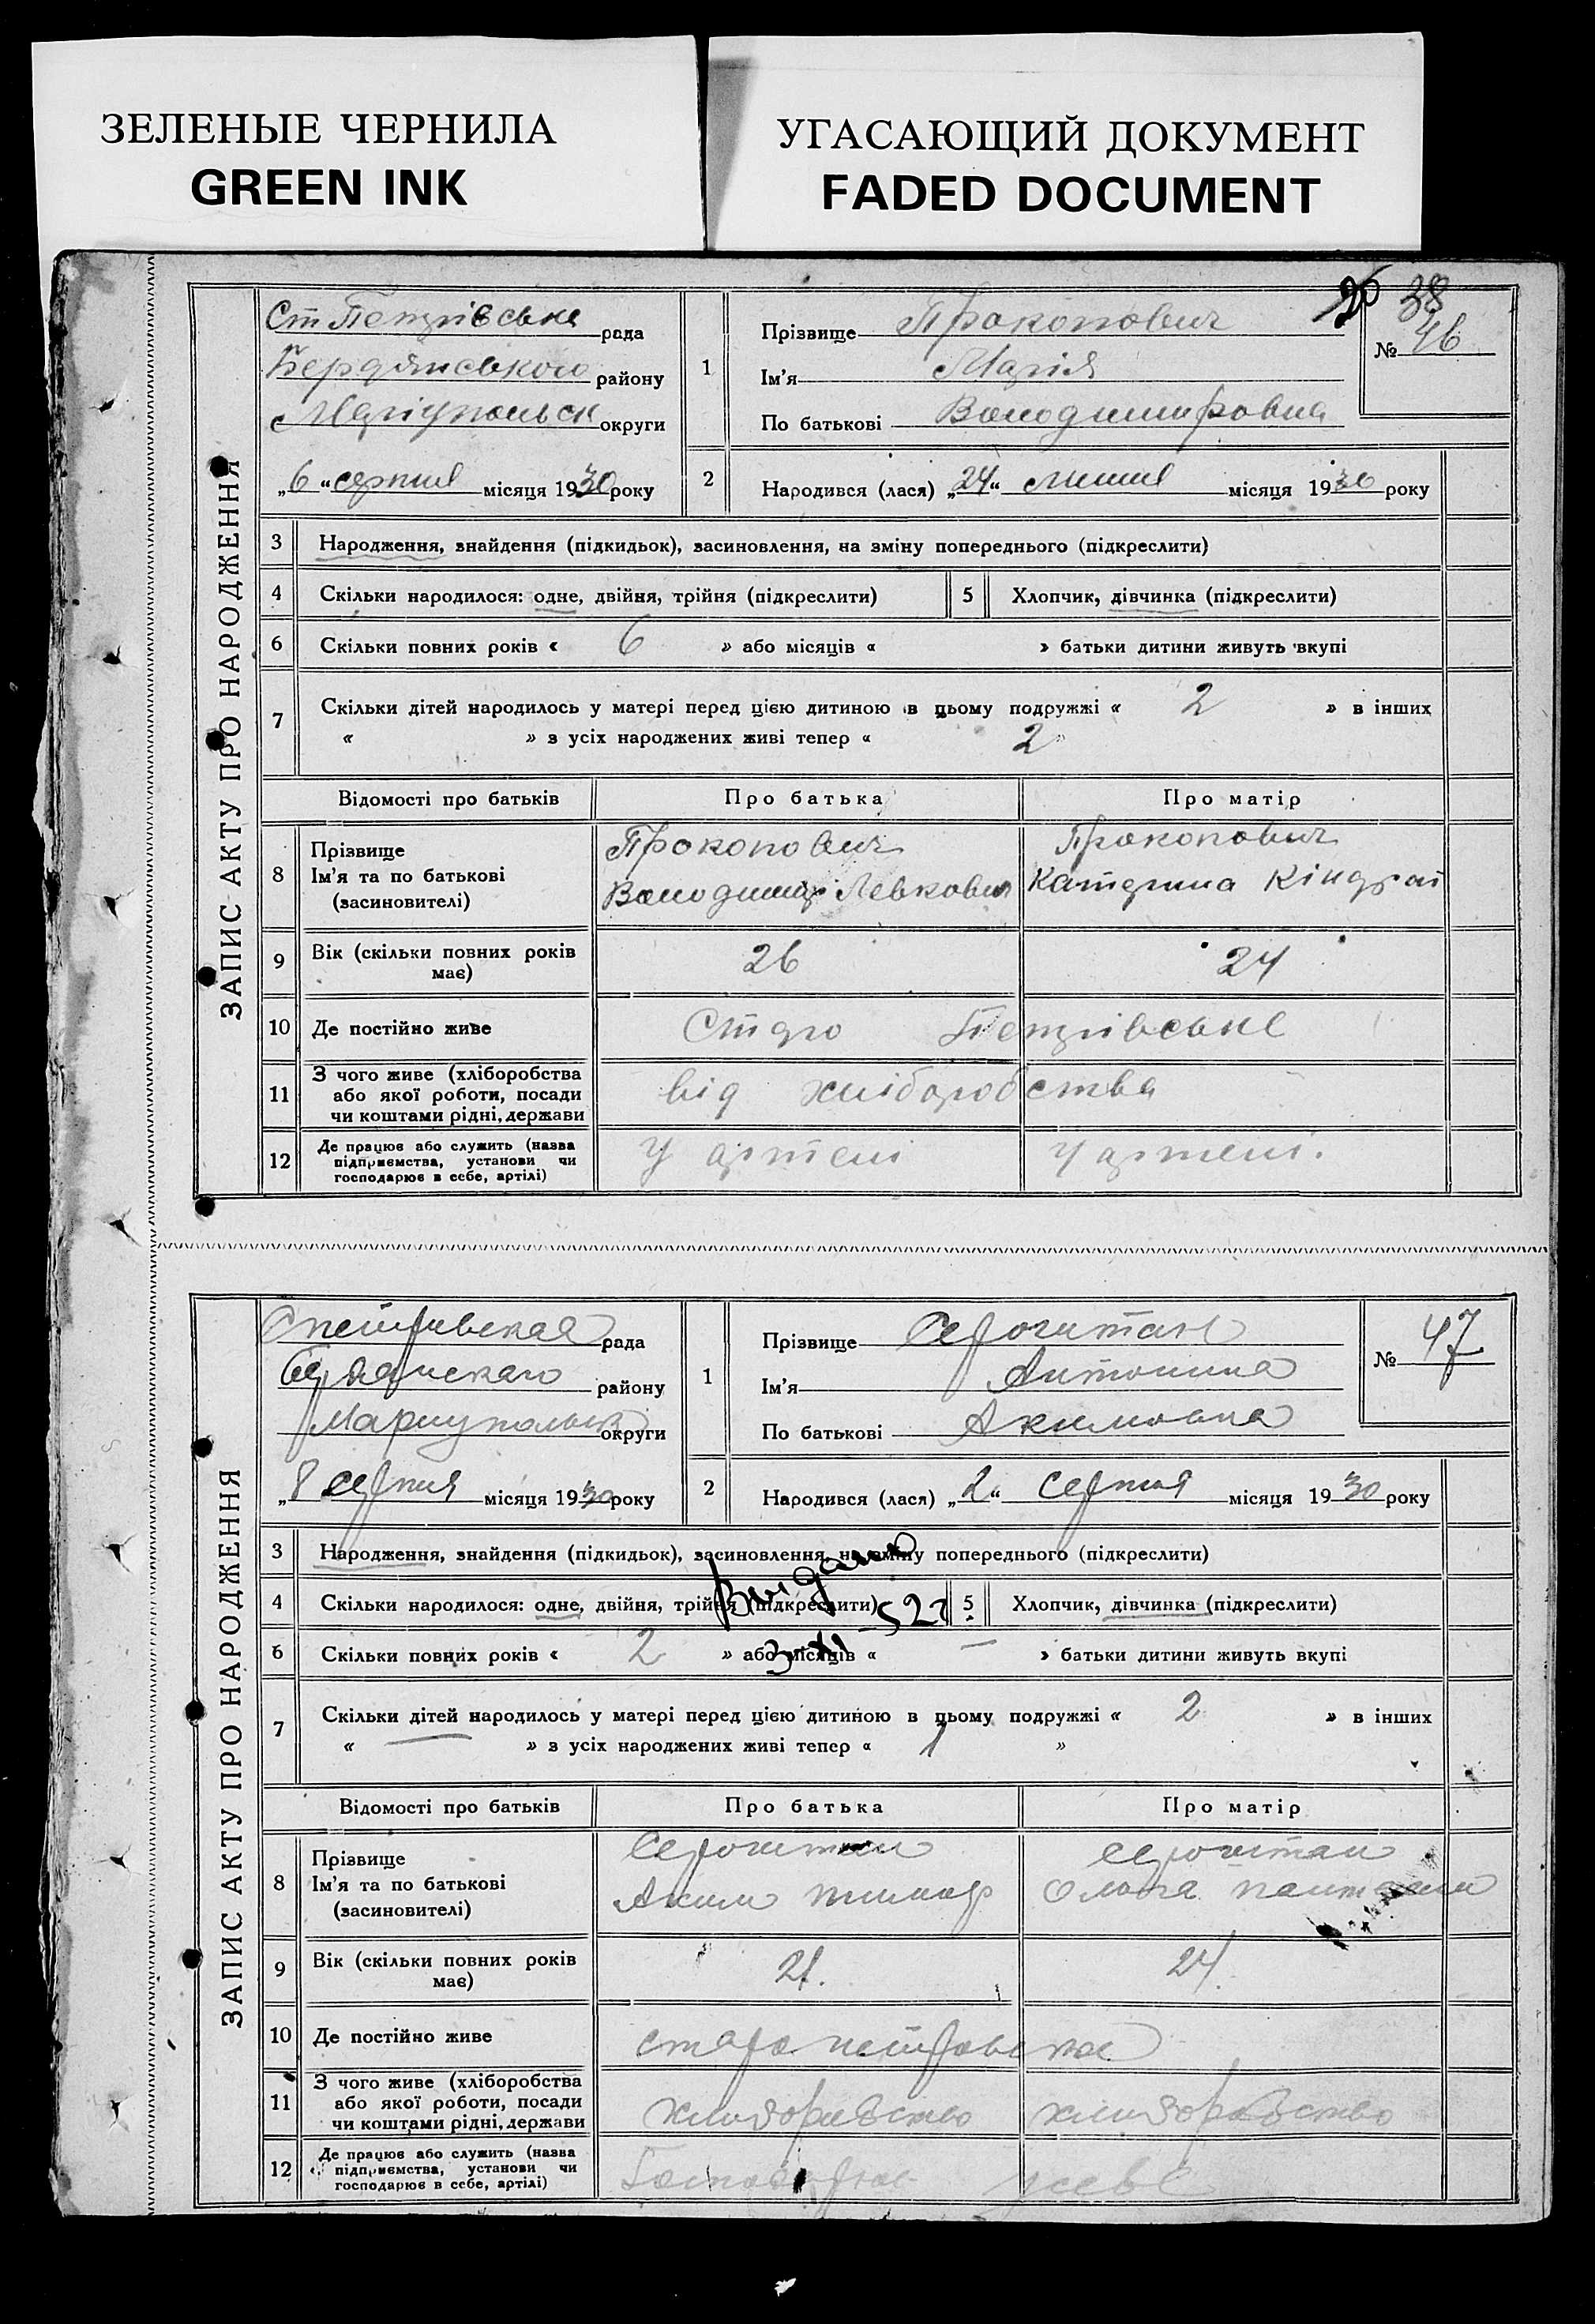 ЗЕЛЕНЫЕ ЧЕРНИЛА
GREEN INK
УГАСАЮЩИЙ ДОКУМЕНТ
FADED DOCUMENT
38
ЗАПИС АКТУ ПРО НАРОДЖЕННЯ
Ст Петрівська рада
Бердянського району
Маріупольск округи
„6“ серпня місяця 1930 року
1 Прізвище Прокопович
Ім'я Марія
По батькові Володимировна
№ 46
2 Народився (лася) „24“ липня місяця 1930 року
3 Народження, знайдення (підкидьок), засиновлення, на зміну попереднього (підкреслити)
4 Скільки народилося: одне, двійня, трійня (підкреслити) 5 Хлопчик, дівчинка (підкреслити)
6 Скільки повних років « 6 » або місяців « » батьки дитини живуть вкупі
7 Скільки дітей народилось у матері перед цією дитиною в цьому подружжі « 2 » в інших
« » з усіх народжених живі тепер « 2 »
Відомості про батьків Про батька Про матір
8 Прізвище Ім'я та по батькові (засновителі)
Прокопович Прокопович
Володимир Левкович Катерина Кіндрат
9 Вік (скільки повних років має) 26 24
10 Де постійно живе Старо Петрівське
11 З чого живе (хліборобства або якої роботи, посади чи коштами рідні, держави від хліборобства
12 Де працює або служить (назва підприємства, установи чи господарює в себе, артілі) У артелі У артелі.
ЗАПИС АКТУ ПРО НАРОДЖЕННЯ
Спетривская рада
Бердянскаго району
округи
„8 серпня місяця 1930 року
1 Прізвище
Ім'я Антонина
По батькові Акимовна
№ 47
2 Народився (лася) „2“ Серпня місяця 1930 року
3 Народження, знайдення (підкидьок), засиновлення, на зміну попереднього (підкреслити)
Видано
4 Скільки народилося: одне, двійня, трійня (підкреслити) 5 Хлопчик, дівчинка (підкреслити)
3-XI-52г
6 Скільки повних років « 2 » або місяців « — » батьки дитини живуть вкупі
7 Скільки дітей народилось у матері перед цією дитиною в цьому подружжі « 2 » в інших
« — » з усіх народжених живі тепер « 1 »
Відомості про батьків Про батька Про матір
8 Прізвище Ім'я та по батькові (засиновителі)
Аким Ольга
9 Вік (скільки повних років має) 21. 24.
10 Де постійно живе
11 З чого живе (хліборобства або якої роботи, посади чи коштами рідні, держави
12 Де працює або служить (назва підприємства, установи чи господарює в себе, артілі)